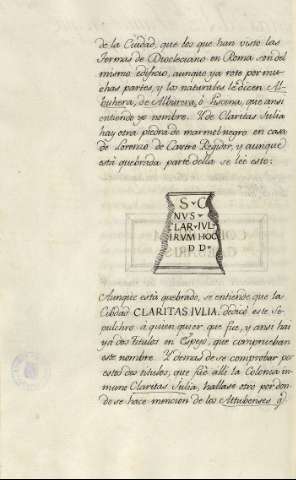 de la Ciudad, que los que han visto las
Termas de Diocleciano en Roma son del
mismo edificio, aunque ya roto por mu-
chas partes, y los naturales le dicen Al-
buhera, de Alburera, ò Piscina, que ansi
entiendo yo nombre. Y de Claritas Julia
hay otra piedra de marmol negro en casa
de Lorenzo de Castro Regidor, y aunque
està quebrada parte della se lee esto:
S · C
NVS
CLAR · IVL
IRVM HOC
D D ·
Aunque està quebrado, se entiende que la
Ciudad CLARITAS IVLIA dedicò este Se-
pulchro a quien quier que fue, y ansi hai
ya dos titulos en Espejo, que comprueban
este nombre. Y demas de se comprobar por
estos dos titulos, que fue alli la Colonia in-
mune Claritas Julia, hallase otro por don-
de se hace mencion de los Attubenses q̃